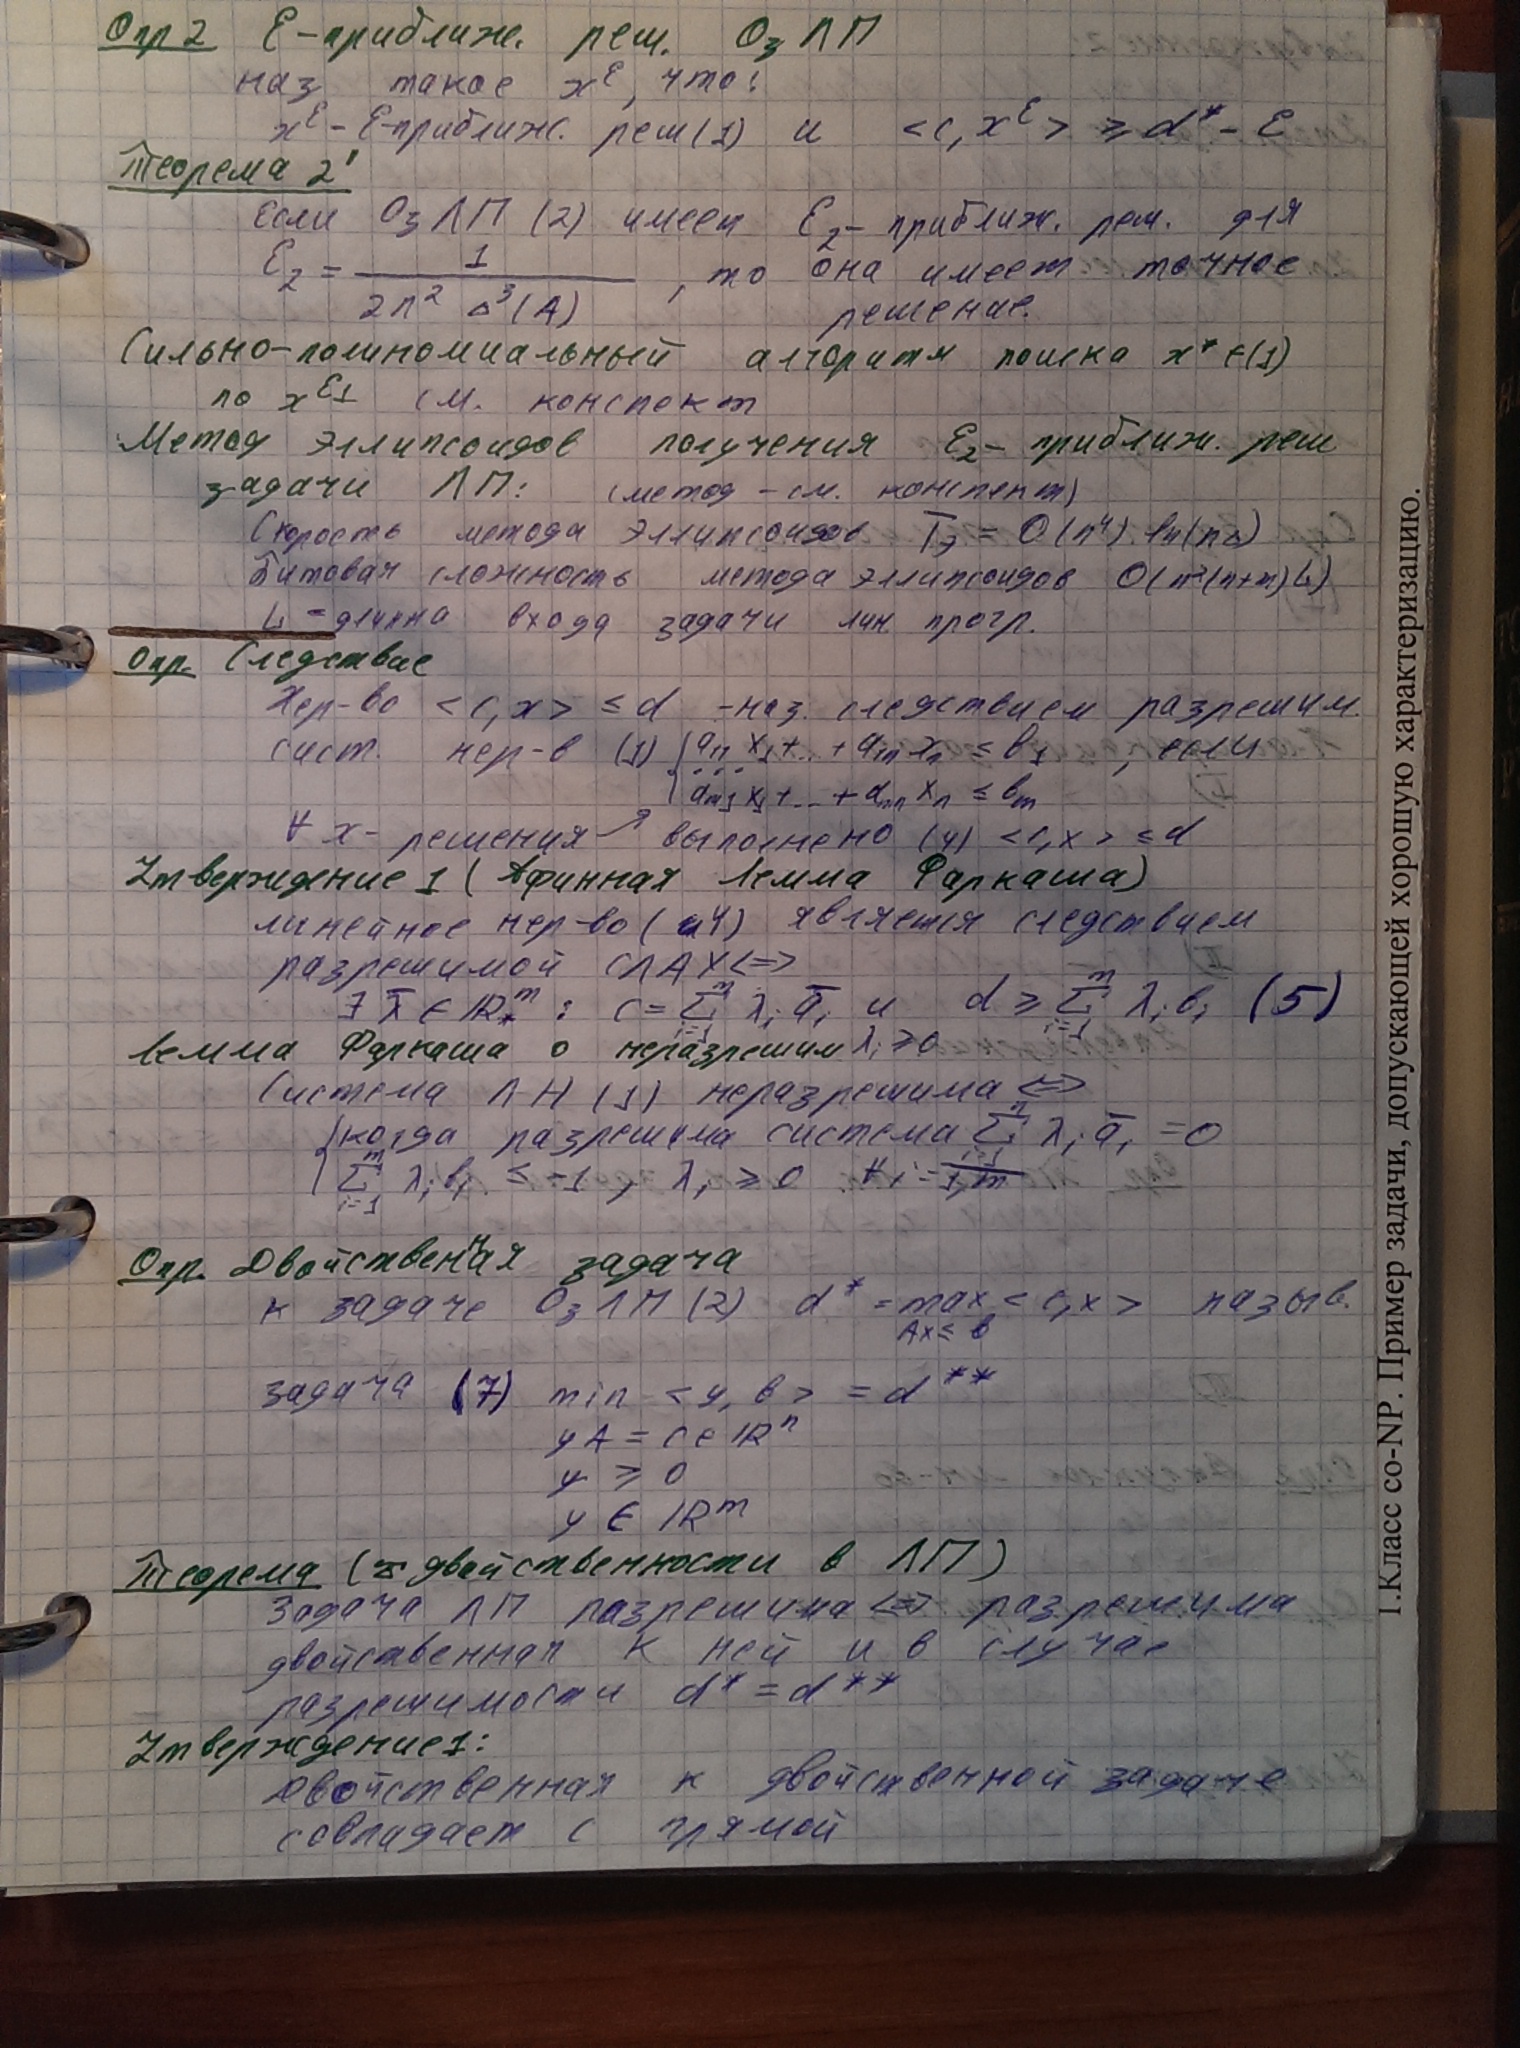 Опр 2 Ɛ-приближ. реш. ОзЛП
наз такое x^Ɛ, что:
x^Ɛ - Ɛ-приближ. реш (1) и <c, x^Ɛ> ≥ d* - Ɛ
Теорема 2'
Если ОзЛП (2) имеет Ɛ₂-приближ. реш. для
Ɛ₂ = 1 / (2n² Δ³(A)), то она имеет точное
решение.
Сильно-полиномиальный алгоритм поиска x* ∈ (1)
по x^Ɛ1 см. конспект
Метод эллипсоидов получения Ɛ₂-приближ. реш
задачи ЛП: (метод - см. конспект)
Скорость метода эллипсоидов Tэ = O(n⁴) ln(nΔ)
Битовая сложность метода эллипсоидов O(n²(n+m)L)
L - длинна входа задачи лин прогр.
Опр. Следствие
Нер-во <c,x> ≤ d - наз. следствием разрешим.
сист. нер-в (1) { a₁₁x₁+...+a₁ₙxₙ ≤ b₁ , если
...
aₘ₁x₁+...+aₘₙxₙ ≤ bₘ
∀ x - решения ↗ выполнено (4) <c,x> ≤ d
Утверждение 1 (Афинная лемма Фаркаша)
линейное нер-во (4) является следствием
разрешимой СЛАХ <=>
∃ λ̄ ∈ ℝ₊ᵐ : c = Σᵢ₌₁ᵐ λᵢ āᵢ и d ≥ Σᵢ₌₁ᵐ λᵢ bᵢ (5)
Лемма Фаркаша о неразрешим λᵢ ≥ 0
Система ЛН (1) неразрешима <=>
{ когда разрешима система Σᵢ₌₁ⁿ λᵢ āᵢ = 0
Σᵢ₌₁ᵐ λᵢ bᵢ ≤ -1, λᵢ ≥ 0 ∀ i = 1,m
Опр. Двойственная задача
к задаче ОзЛП (2) d* = max <c,x> назыв.
Ax ≤ b
задача (7) min <y, b> = d**
yA = c ∈ ℝⁿ
y ≥ 0
y ∈ ℝᵐ
Теорема (двойственности в ЛП)
Задача ЛП разрешима <=> разрешима
двойственная к ней и в случае
разрешимости d* = d**
Утверждение 1:
Двойственная к двойственной задаче
совпадает с прямой
I.Класс co-NP. Пример задачи, допускающей хорошую характеризацию.